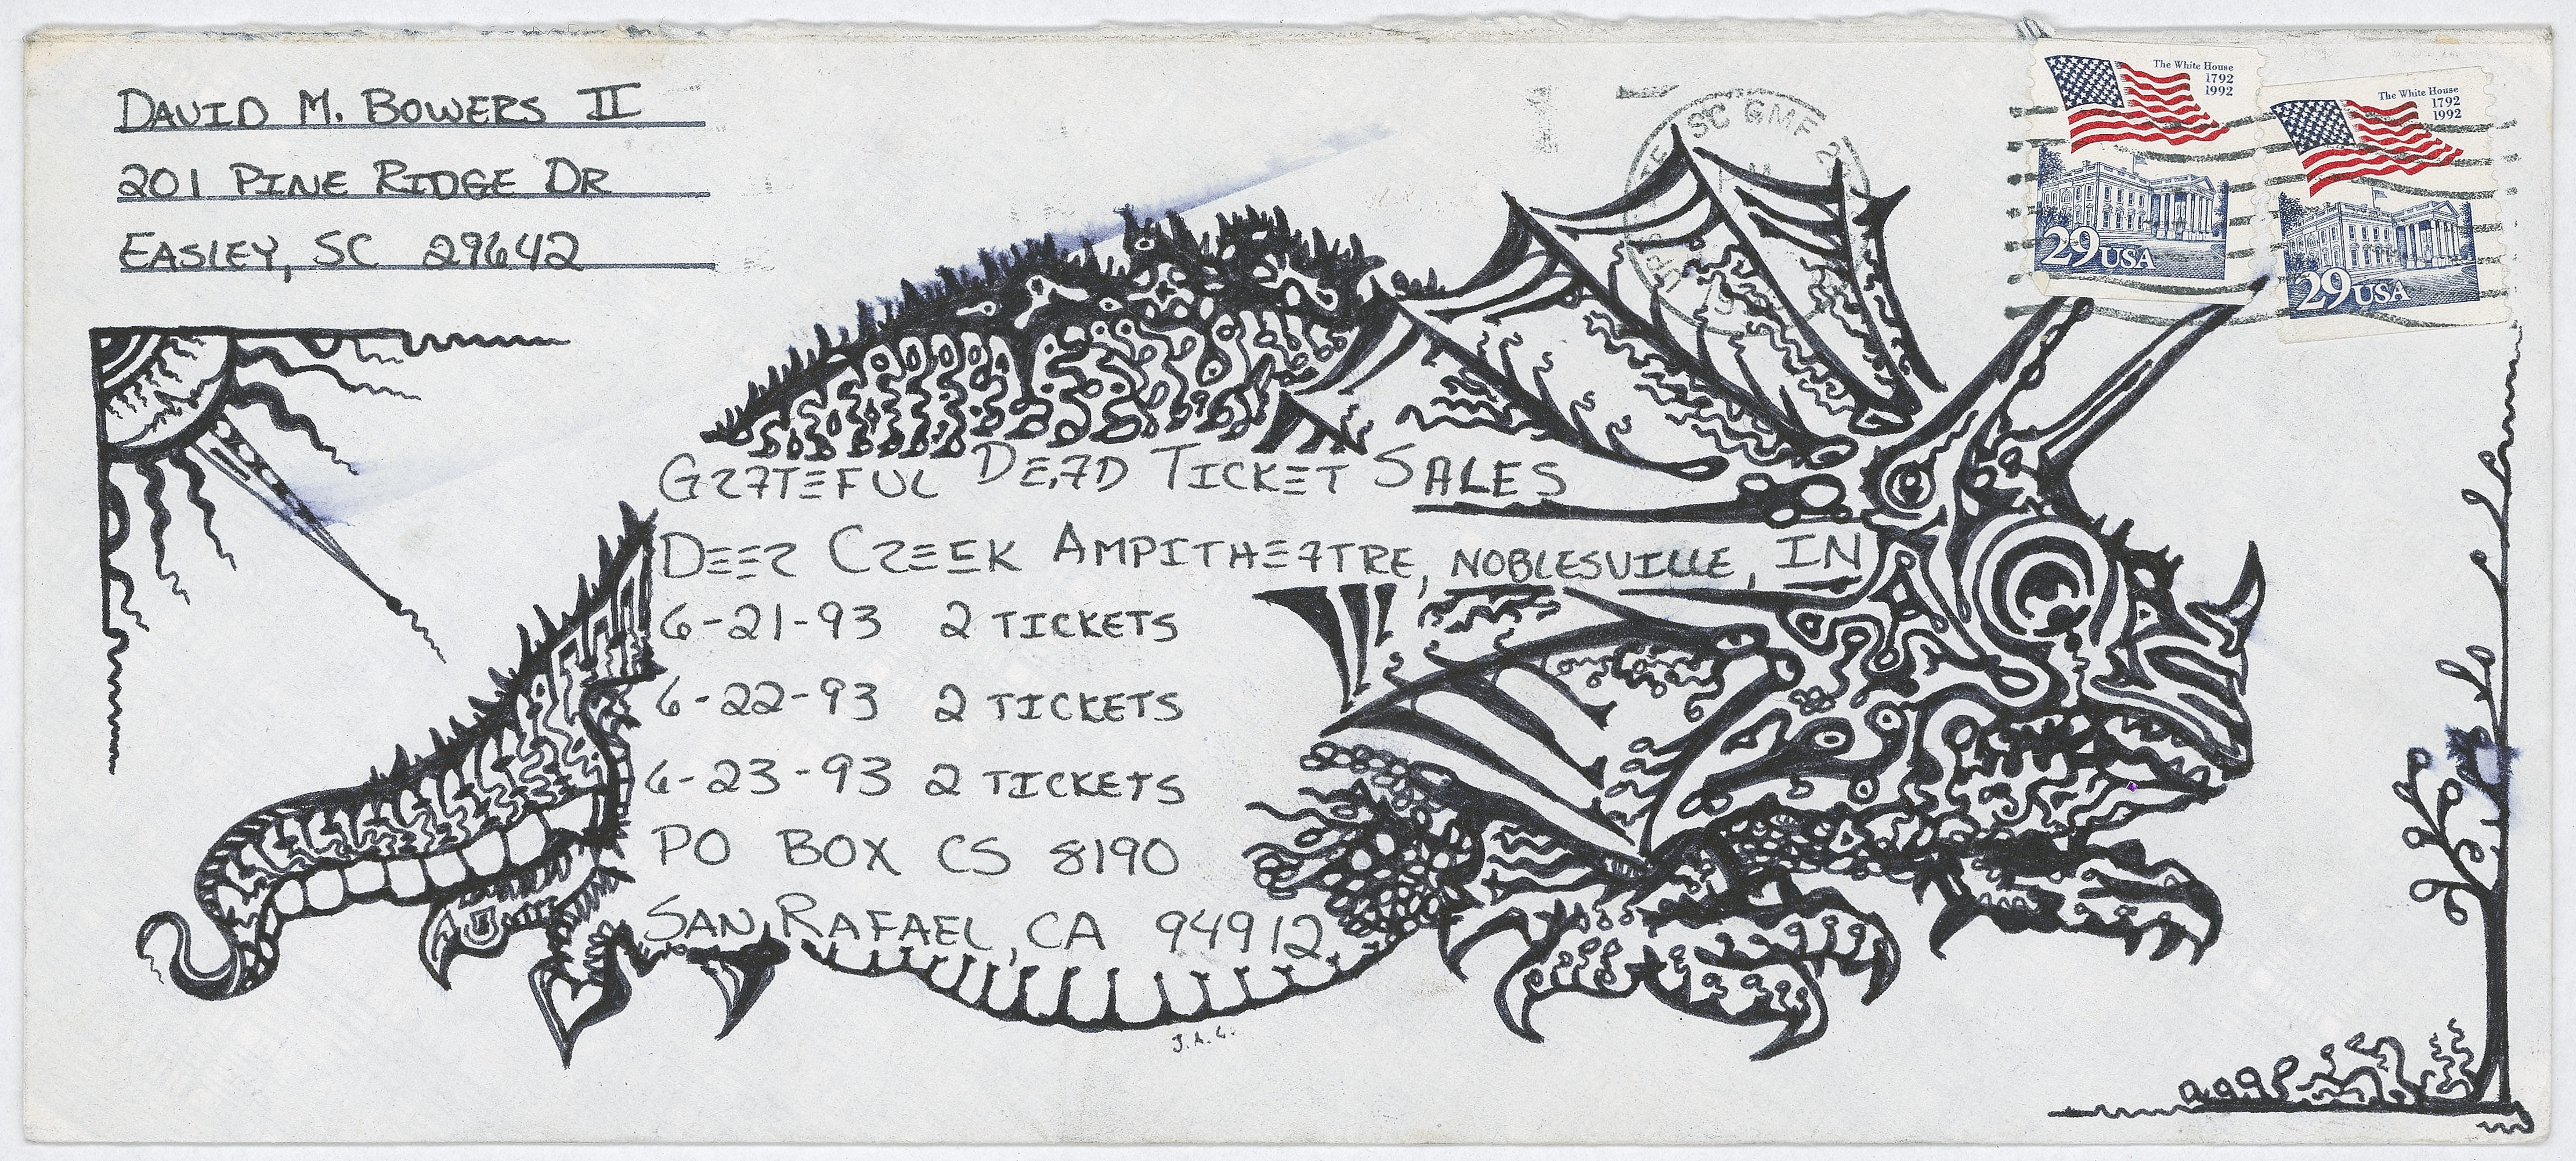 DAVID M. BOWERS II
201 PINE RIDGE DR
EASLEY, SC 29642
SC GMF
The White House
1792
1992
29 USA
The White House
1792
1992
29 USA
GRATEFUL DEAD TICKET SALES
DEER CREEK AMPITHEATRE, NOBLESVILLE, IN
6-21-93 2 TICKETS
6-22-93 2 TICKETS
6-23-93 2 TICKETS
PO BOX CS 8190
SAN RAFAEL, CA 94912